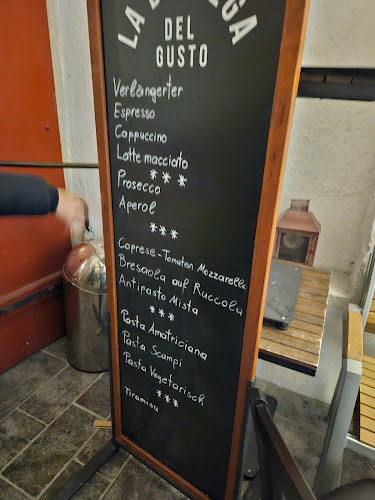 LA
DEL
GUSTO
Verlängerter
Espresso
Cappuccino
Latte macchiato
***
Prosecco
Aperol
***
Caprese-Tomaten Mozzarella
Bresaola auf Ruccola
Antipasto Mista
***
Pasta Amatriciana
Pasta Scampi
Pasta Vegetarisch
***
Tiramisu